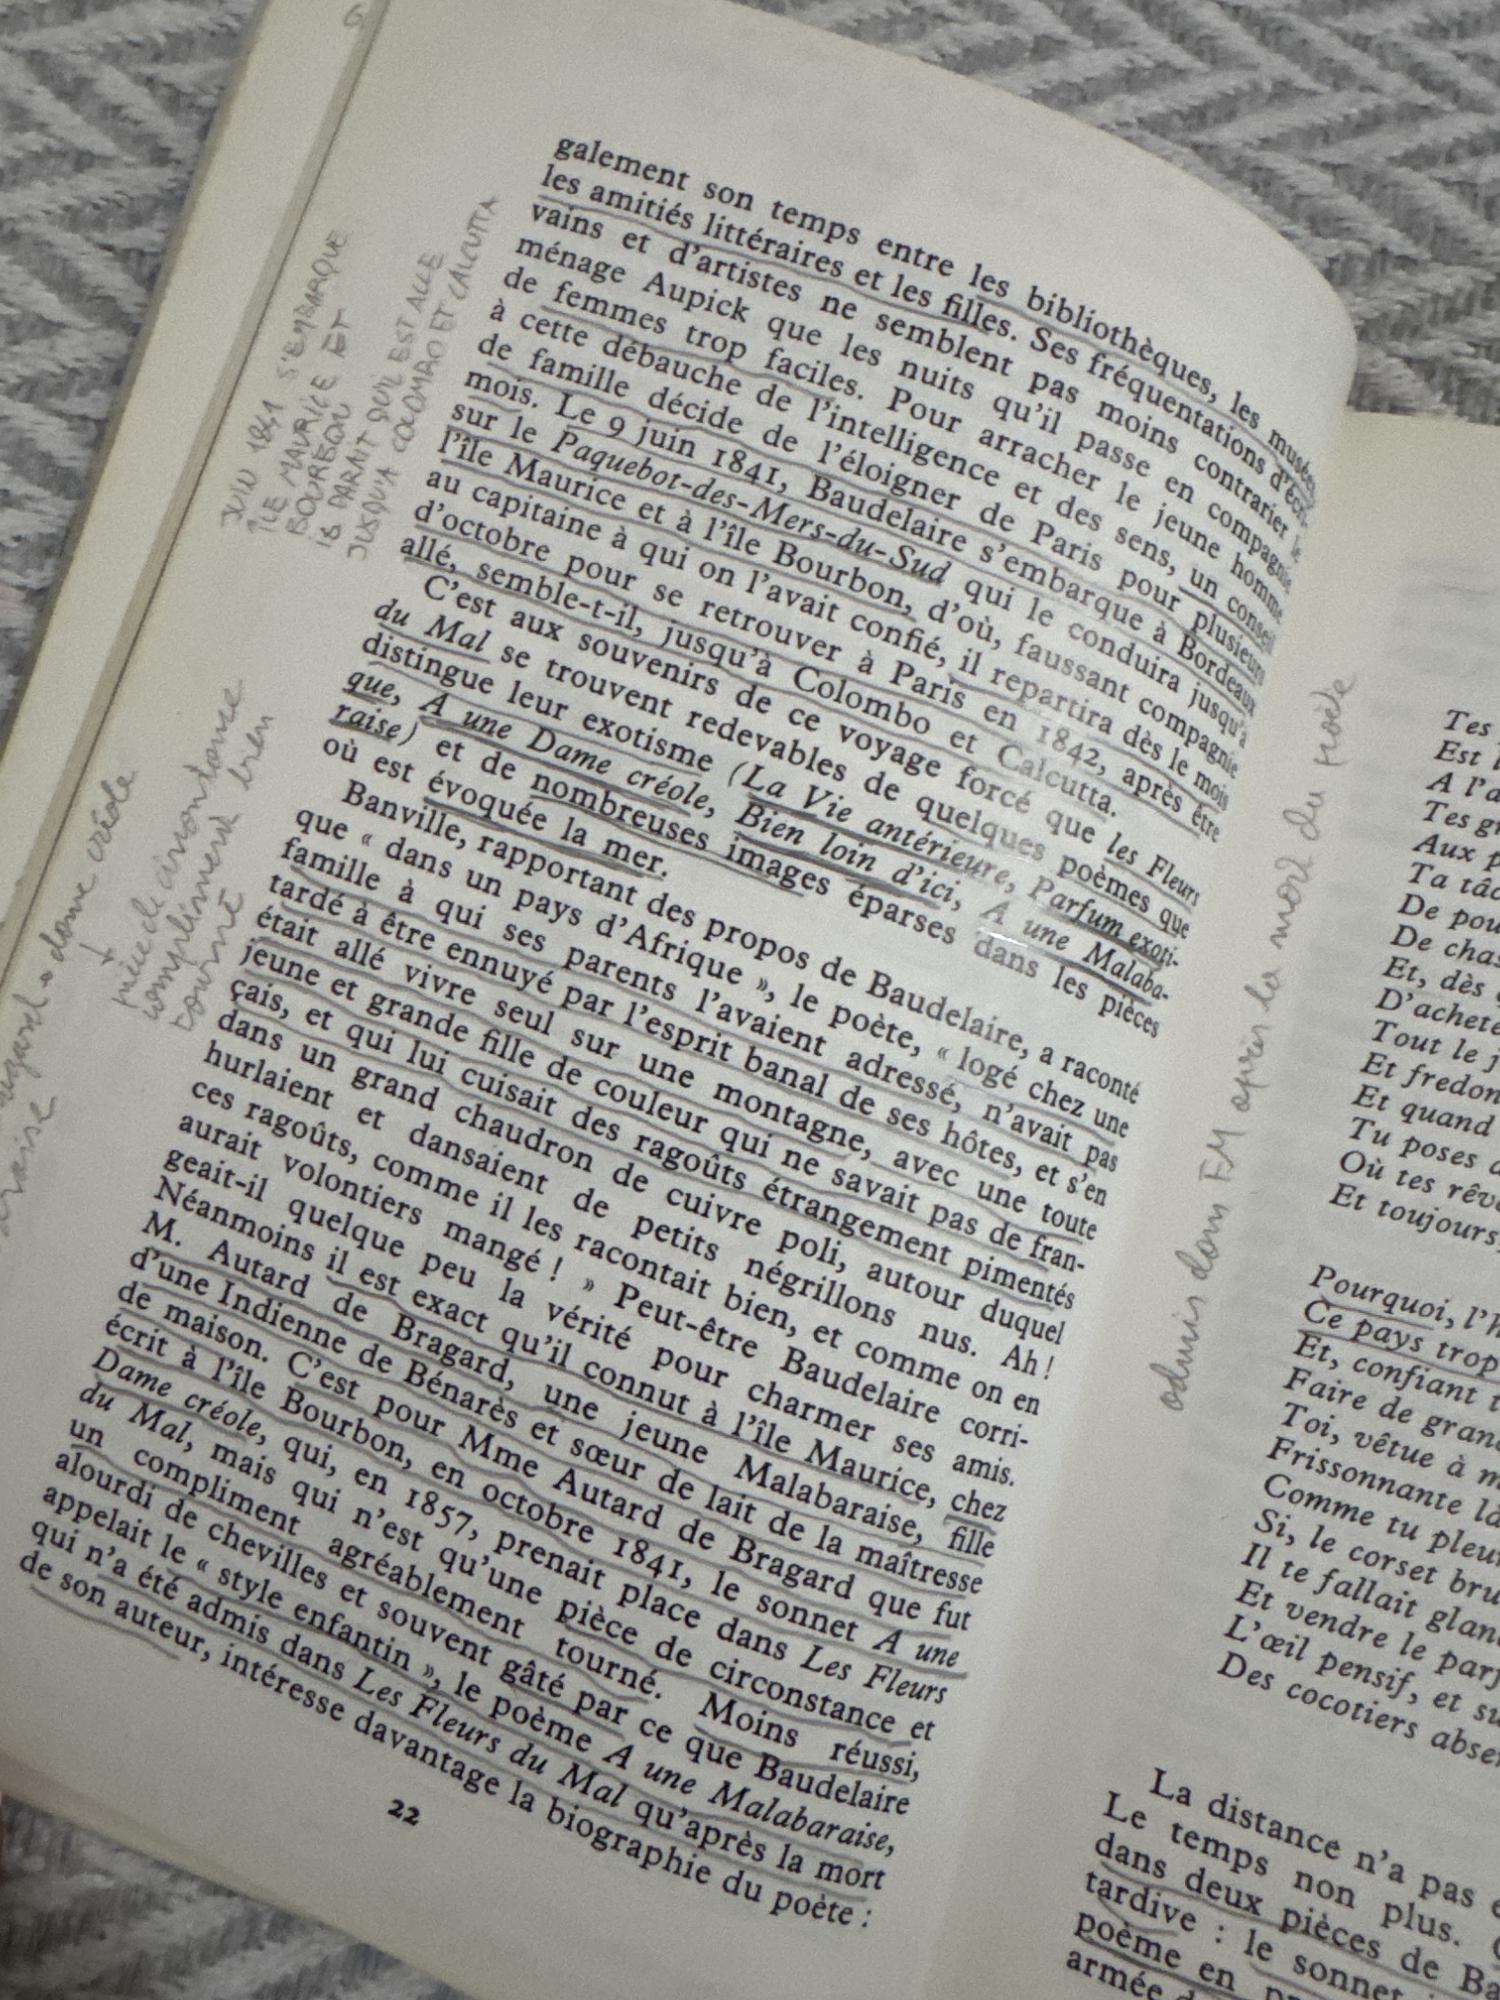 galement son temps entre les bibliothèques, les musées,
les amitiés littéraires et les filles. Ses fréquentations d'écri-
vains et d'artistes ne semblent pas moins contrarier le
ménage Aupick que les nuits qu'il passe en compagnie
de femmes trop faciles. Pour arracher le jeune homme
à cette débauche de l'intelligence et des sens, un conseil
de famille décide de l'éloigner de Paris pour plusieurs
mois. Le 9 juin 1841, Baudelaire s'embarque à Bordeaux
sur le Paquebot-des-Mers-du-Sud qui le conduira jusqu'à
l'île Maurice et à l'île Bourbon, d'où, faussant compagnie
au capitaine à qui on l'avait confié, il repartira dès le mois
d'octobre pour se retrouver à Paris en 1842, après être
allé, semble-t-il, jusqu'à Colombo et Calcutta.
C'est aux souvenirs de ce voyage forcé que les Fleurs
du Mal se trouvent redevables de quelques poèmes que
distingue leur exotisme (La Vie antérieure, Parfum exoti-
que, A une Dame créole, Bien loin d'ici, A une Malaba-
raise) et de nombreuses images éparses dans les pièces
où est évoquée la mer.
Banville, rapportant des propos de Baudelaire, a raconté
que « dans un pays d'Afrique », le poète, « logé chez une
famille à qui ses parents l'avaient adressé, n'avait pas
tardé à être ennuyé par l'esprit banal de ses hôtes, et s'en
était allé vivre seul sur une montagne, avec une toute
jeune et grande fille de couleur qui ne savait pas de fran-
çais, et qui lui cuisait des ragoûts étrangement pimentés
dans un grand chaudron de cuivre poli, autour duquel
hurlaient et dansaient de petits négrillons nus. Ah !
ces ragoûts, comme il les racontait bien, et comme on en
aurait volontiers mangé ! » Peut-être Baudelaire corri-
geait-il quelque peu la vérité pour charmer ses amis.
Néanmoins il est exact qu'il connut à l'île Maurice, chez
M. Autard de Bragard, une jeune Malabaraise, fille
d'une Indienne de Bénarès et sœur de lait de la maîtresse
de maison. C'est pour Mme Autard de Bragard que fut
écrit à l'île Bourbon, en octobre 1841, le sonnet A une
Dame créole, qui, en 1857, prenait place dans Les Fleurs
du Mal, mais qui n'est qu'une pièce de circonstance et
un compliment agréablement tourné. Moins réussi,
alourdi de chevilles et souvent gâté par ce que Baudelaire
appelait le « style enfantin », le poème A une Malabaraise,
qui n'a été admis dans Les Fleurs du Mal qu'après la mort
de son auteur, intéresse davantage la biographie du poète :
22
JUIN 1841 S'EMBARQUE
ÎLE MAURICE ET
BOURBON ET
IL PARAIT QU'IL EST ALLE
JUSQU'A COLOMBO ET CALCUTTA
dame créole
pièce de circonstance
complément bien
tourné
admis dans FM après la mort du poète
Tes
Est
A l'a
Tes
Aux
Ta
De
De
Et, dès
D'achete
Tout le
Et fredon
Et quand
Tu poses
Où tes
Et toujours,
Pourquoi,
Ce pays trop
Et, confiant
Faire de
Toi, vêtue à
Frissonnante
Comme tu
Si, le corset
Il te fallait
Et vendre le
L'œil pensif, et
Des cocotiers
La distance n'a pas
Le temps non plus.
dans deux pièces de
tardive : le sonnet
poème en
armée